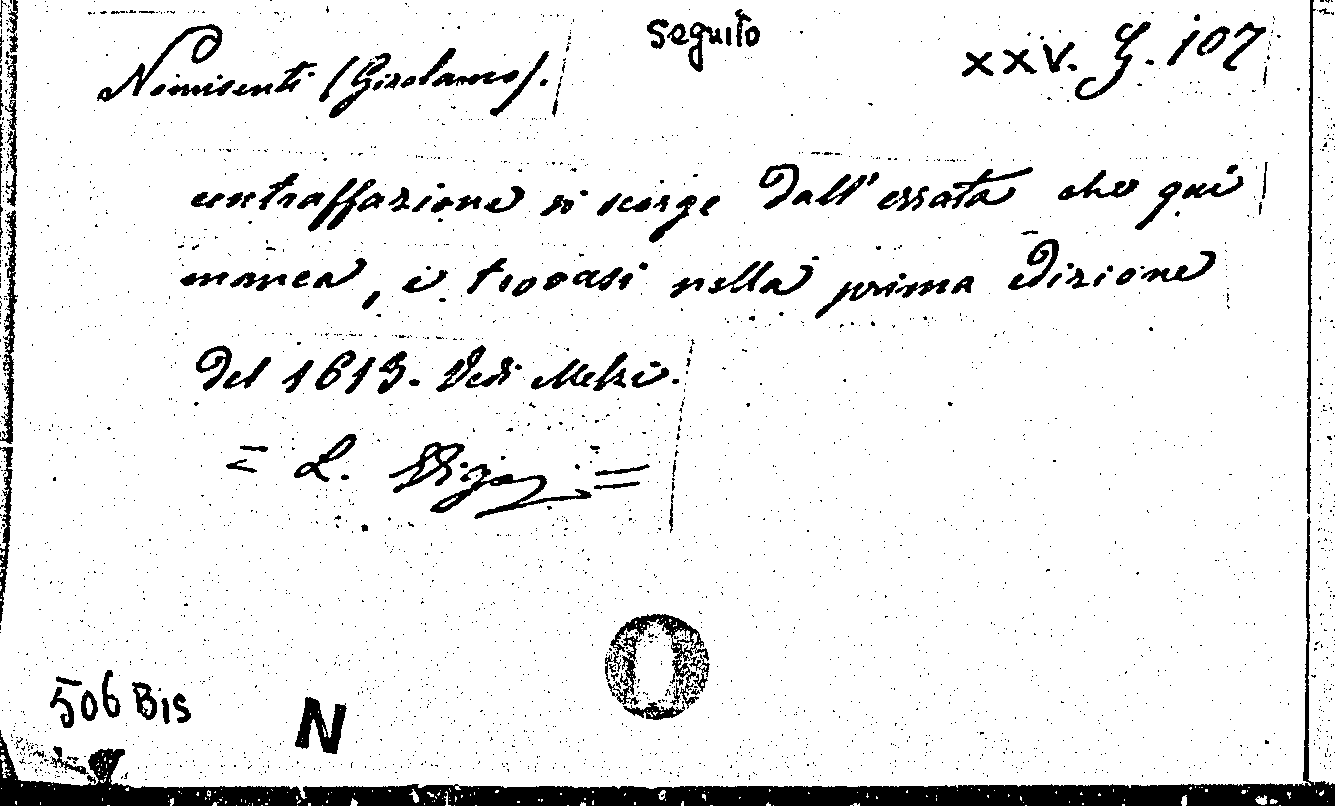 seguito
Nomisenti (Girolamo).
XXV. G. 107
contraffazione si scorge dall' essata che qui
manca, e trovasi nella prima edizione
del 1613. Vedi Melzi.
= L. =
506 Bis
N